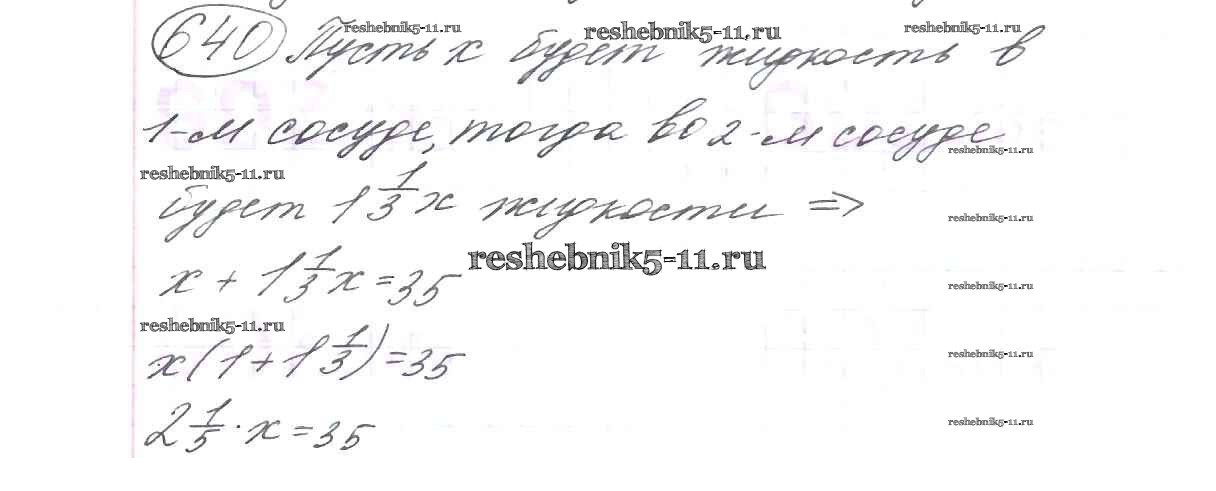 640 Пусть x будет жидкость в
1-м сосуде, тогда во 2-м сосуде
будет 1 1/3 x жидкости ⇒
x + 1 1/3 x = 35
x(1 + 1 1/3) = 35
2 1/5 · x = 35
reshebnik5-11.ru
reshebnik5-11.ru
reshebnik5-11.ru
reshebnik5-11.ru
reshebnik5-11.ru
reshebnik5-11.ru
reshebnik5-11.ru
reshebnik5-11.ru
reshebnik5-11.ru
reshebnik5-11.ru
reshebnik5-11.ru